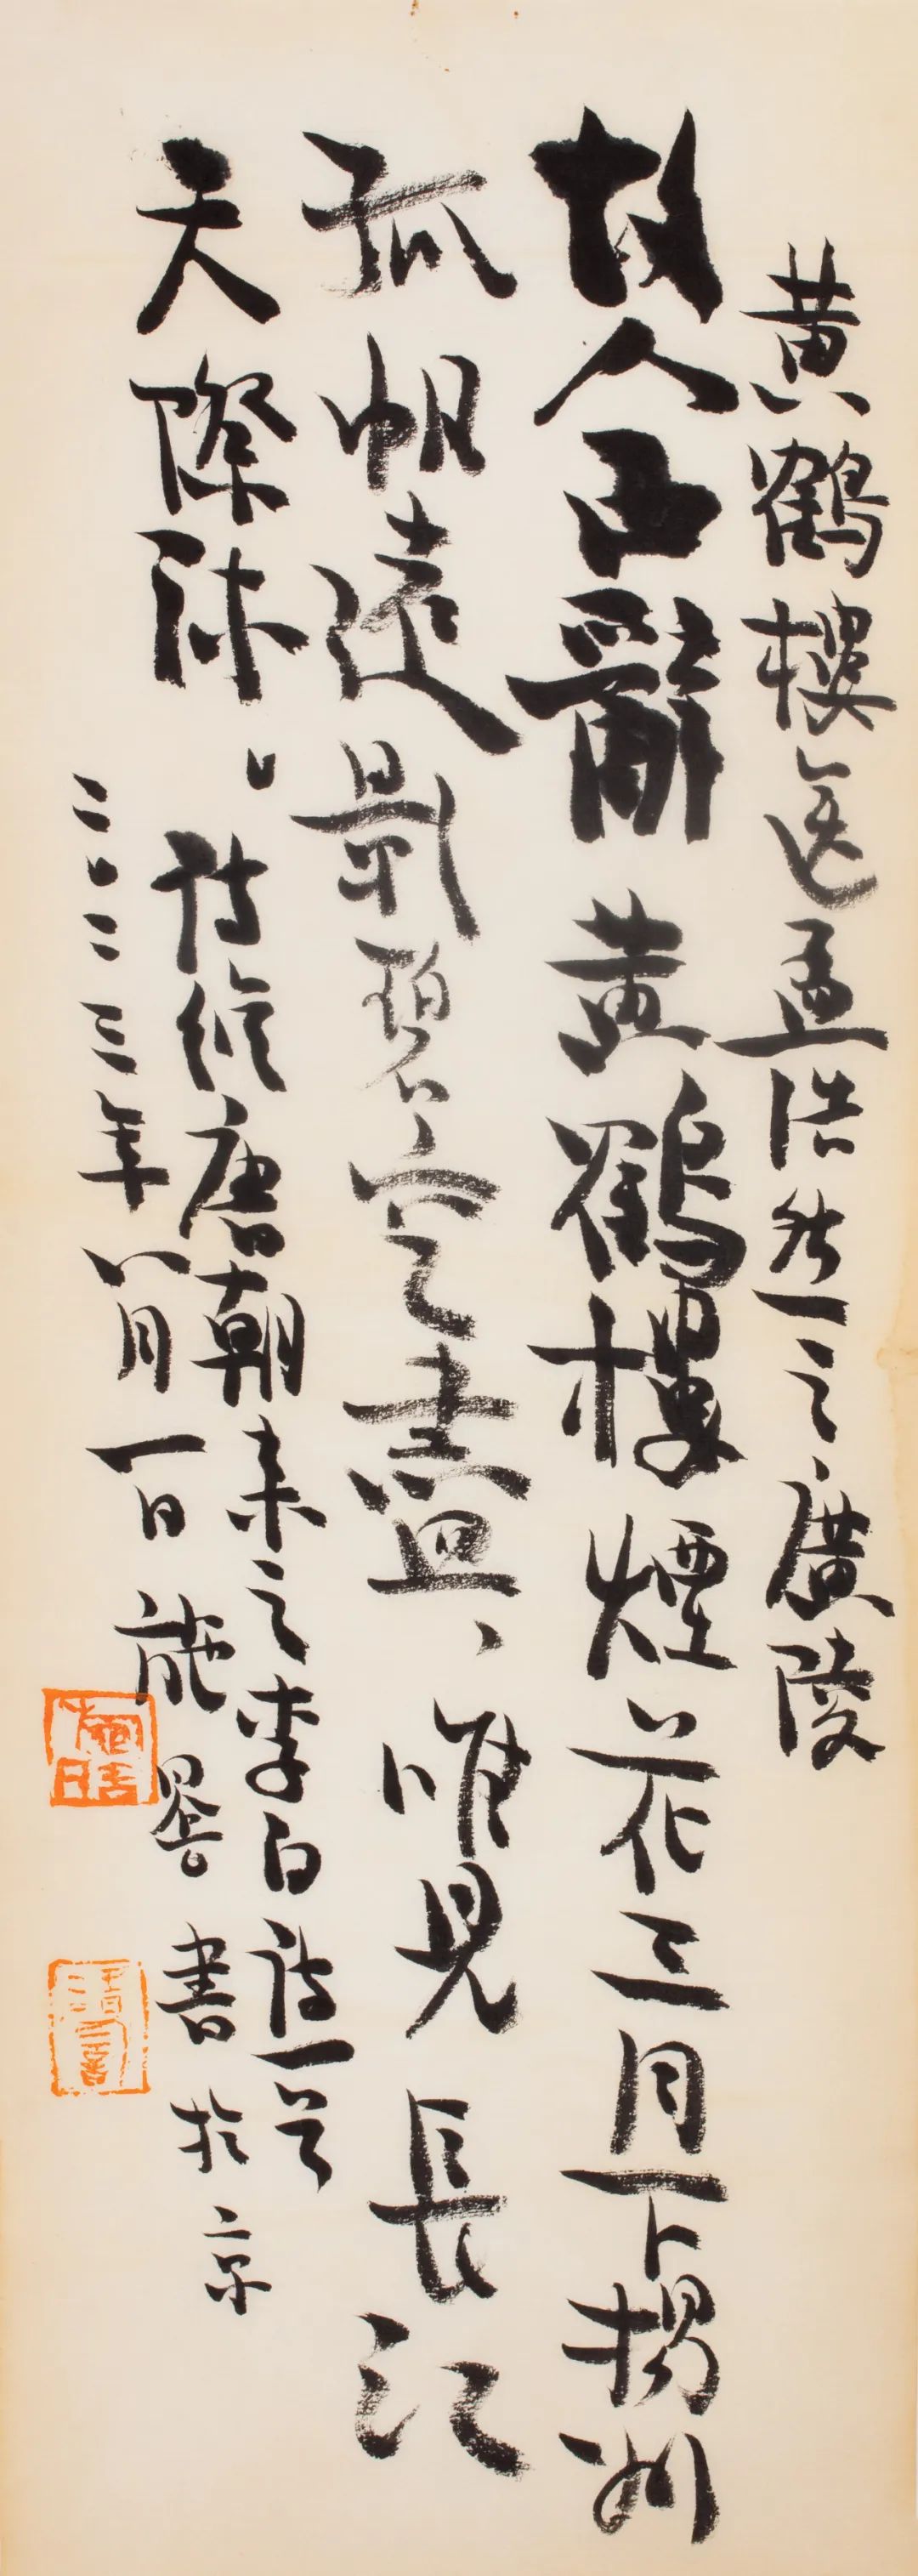 黄鶴樓送孟浩然之廣陵
故人西辭黄鶴樓煙花三月下揚州
孤帆遠影碧空盡、唯見長江
天際流。詩從唐朝來之李白詩一首
二〇二三年八月一日施晗書於京
施晗